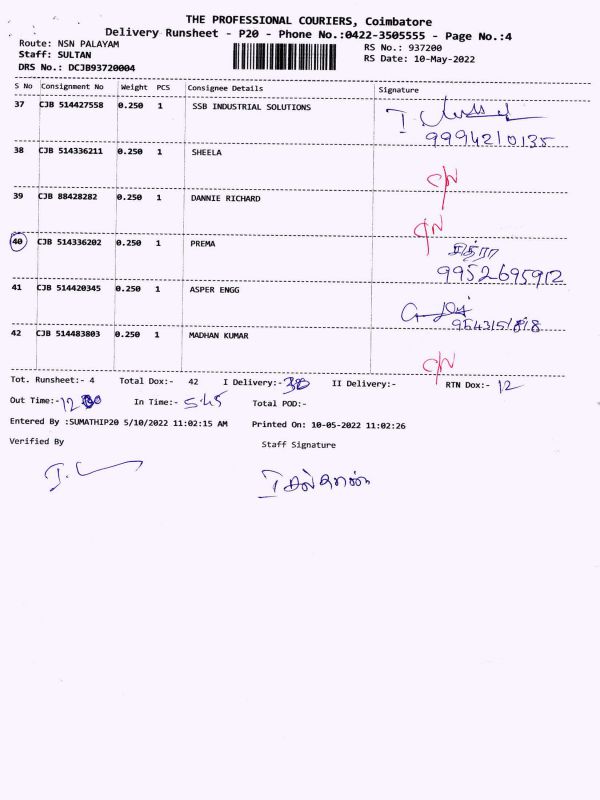 THE PROFESSIONAL COURIERS, Coimbatore
Delivery Runsheet - P20 - Phone No.:0422-3505555 - Page No.:4
Route: NSN PALAYAM RS No.: 937200
Staff: SULTAN RS Date: 10-May-2022
DRS No.: DCJB93720004
S No Consignment No Weight PCS Consignee Details Signature
37 CJB 514427558 0.250 1 SSB INDUSTRIAL SOLUTIONS
9994210135
38 CJB 514336211 0.250 1 SHEELA
39 CJB 88428282 0.250 1 DANNIE RICHARD
40 CJB 514336202 0.250 1 PREMA சித்ரா
9952695912
41 CJB 514420345 0.250 1 ASPER ENGG
42 CJB 514483803 0.250 1 MADHAN KUMAR
Tot. Runsheet:- 4 Total Dox:- 42 I Delivery:- II Delivery:- RTN Dox:- 12
Out Time:- In Time:- 5:45 Total POD:-
Entered By :SUMATHIP20 5/10/2022 11:02:15 AM Printed On: 10-05-2022 11:02:26
Verified By Staff Signature